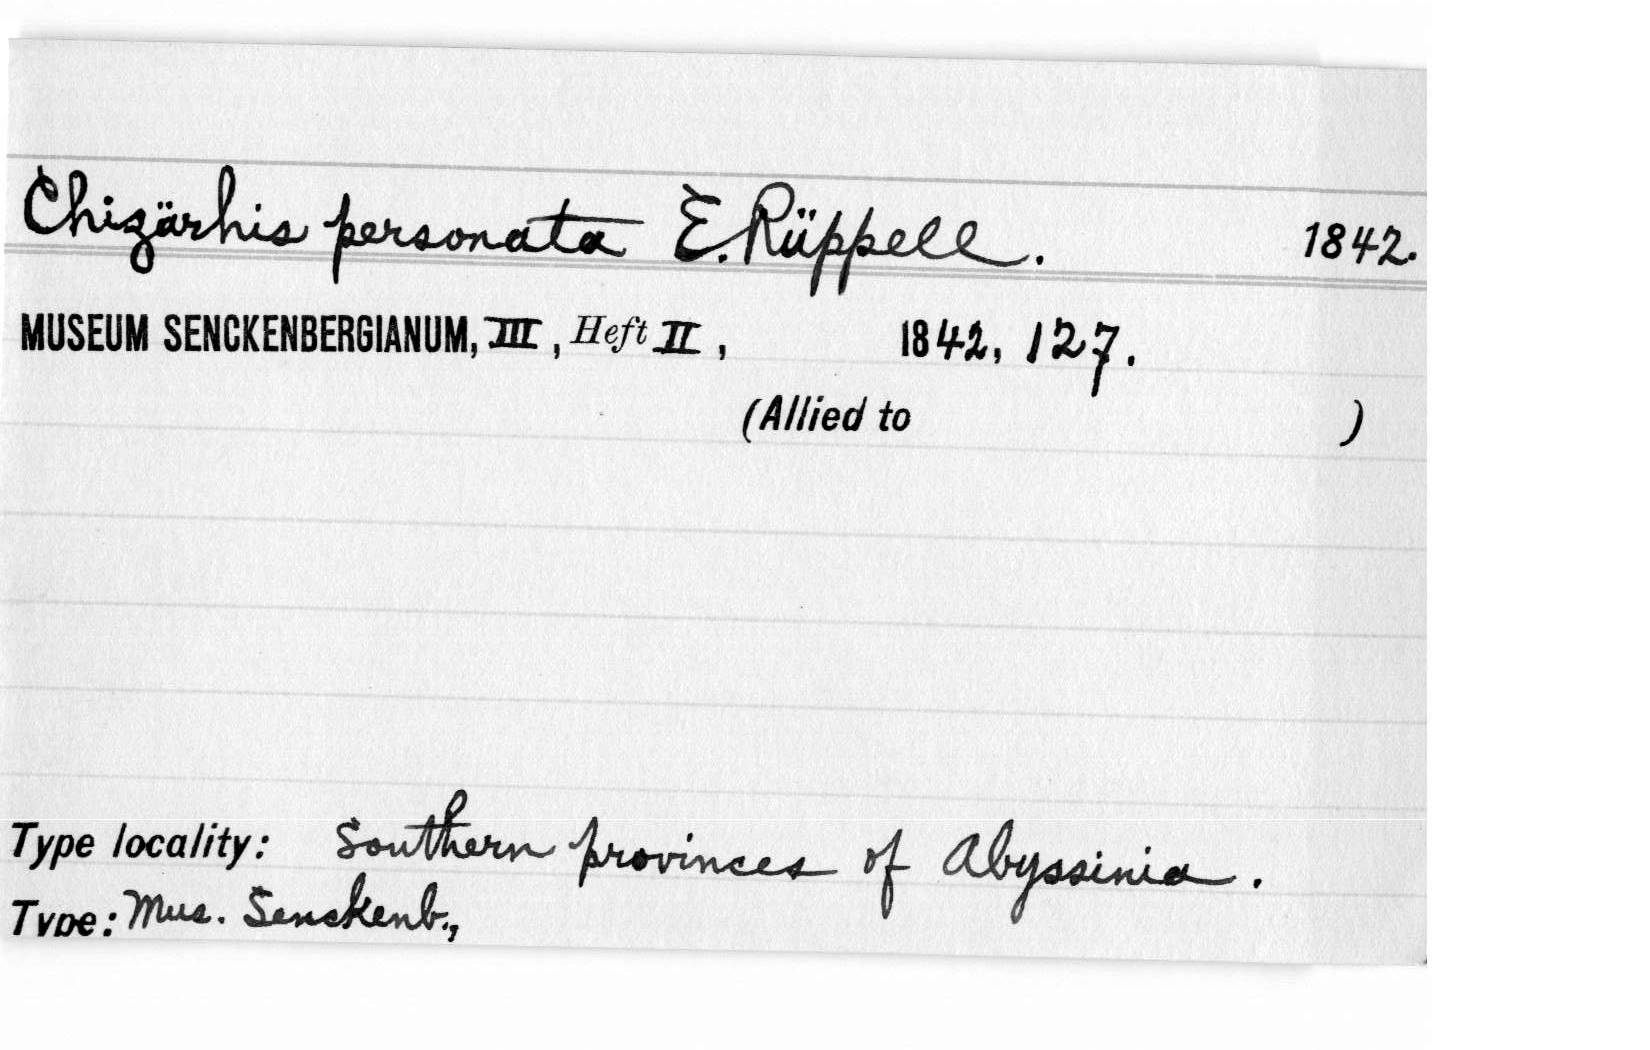 Chizärhis personata E. Rüppell. 1842.
MUSEUM SENCKENBERGIANUM, III, Heft II, 1842, 127.
(Allied to )
Type locality: Southern provinces of Abyssinia.
Type: Mus. Senckenb.,